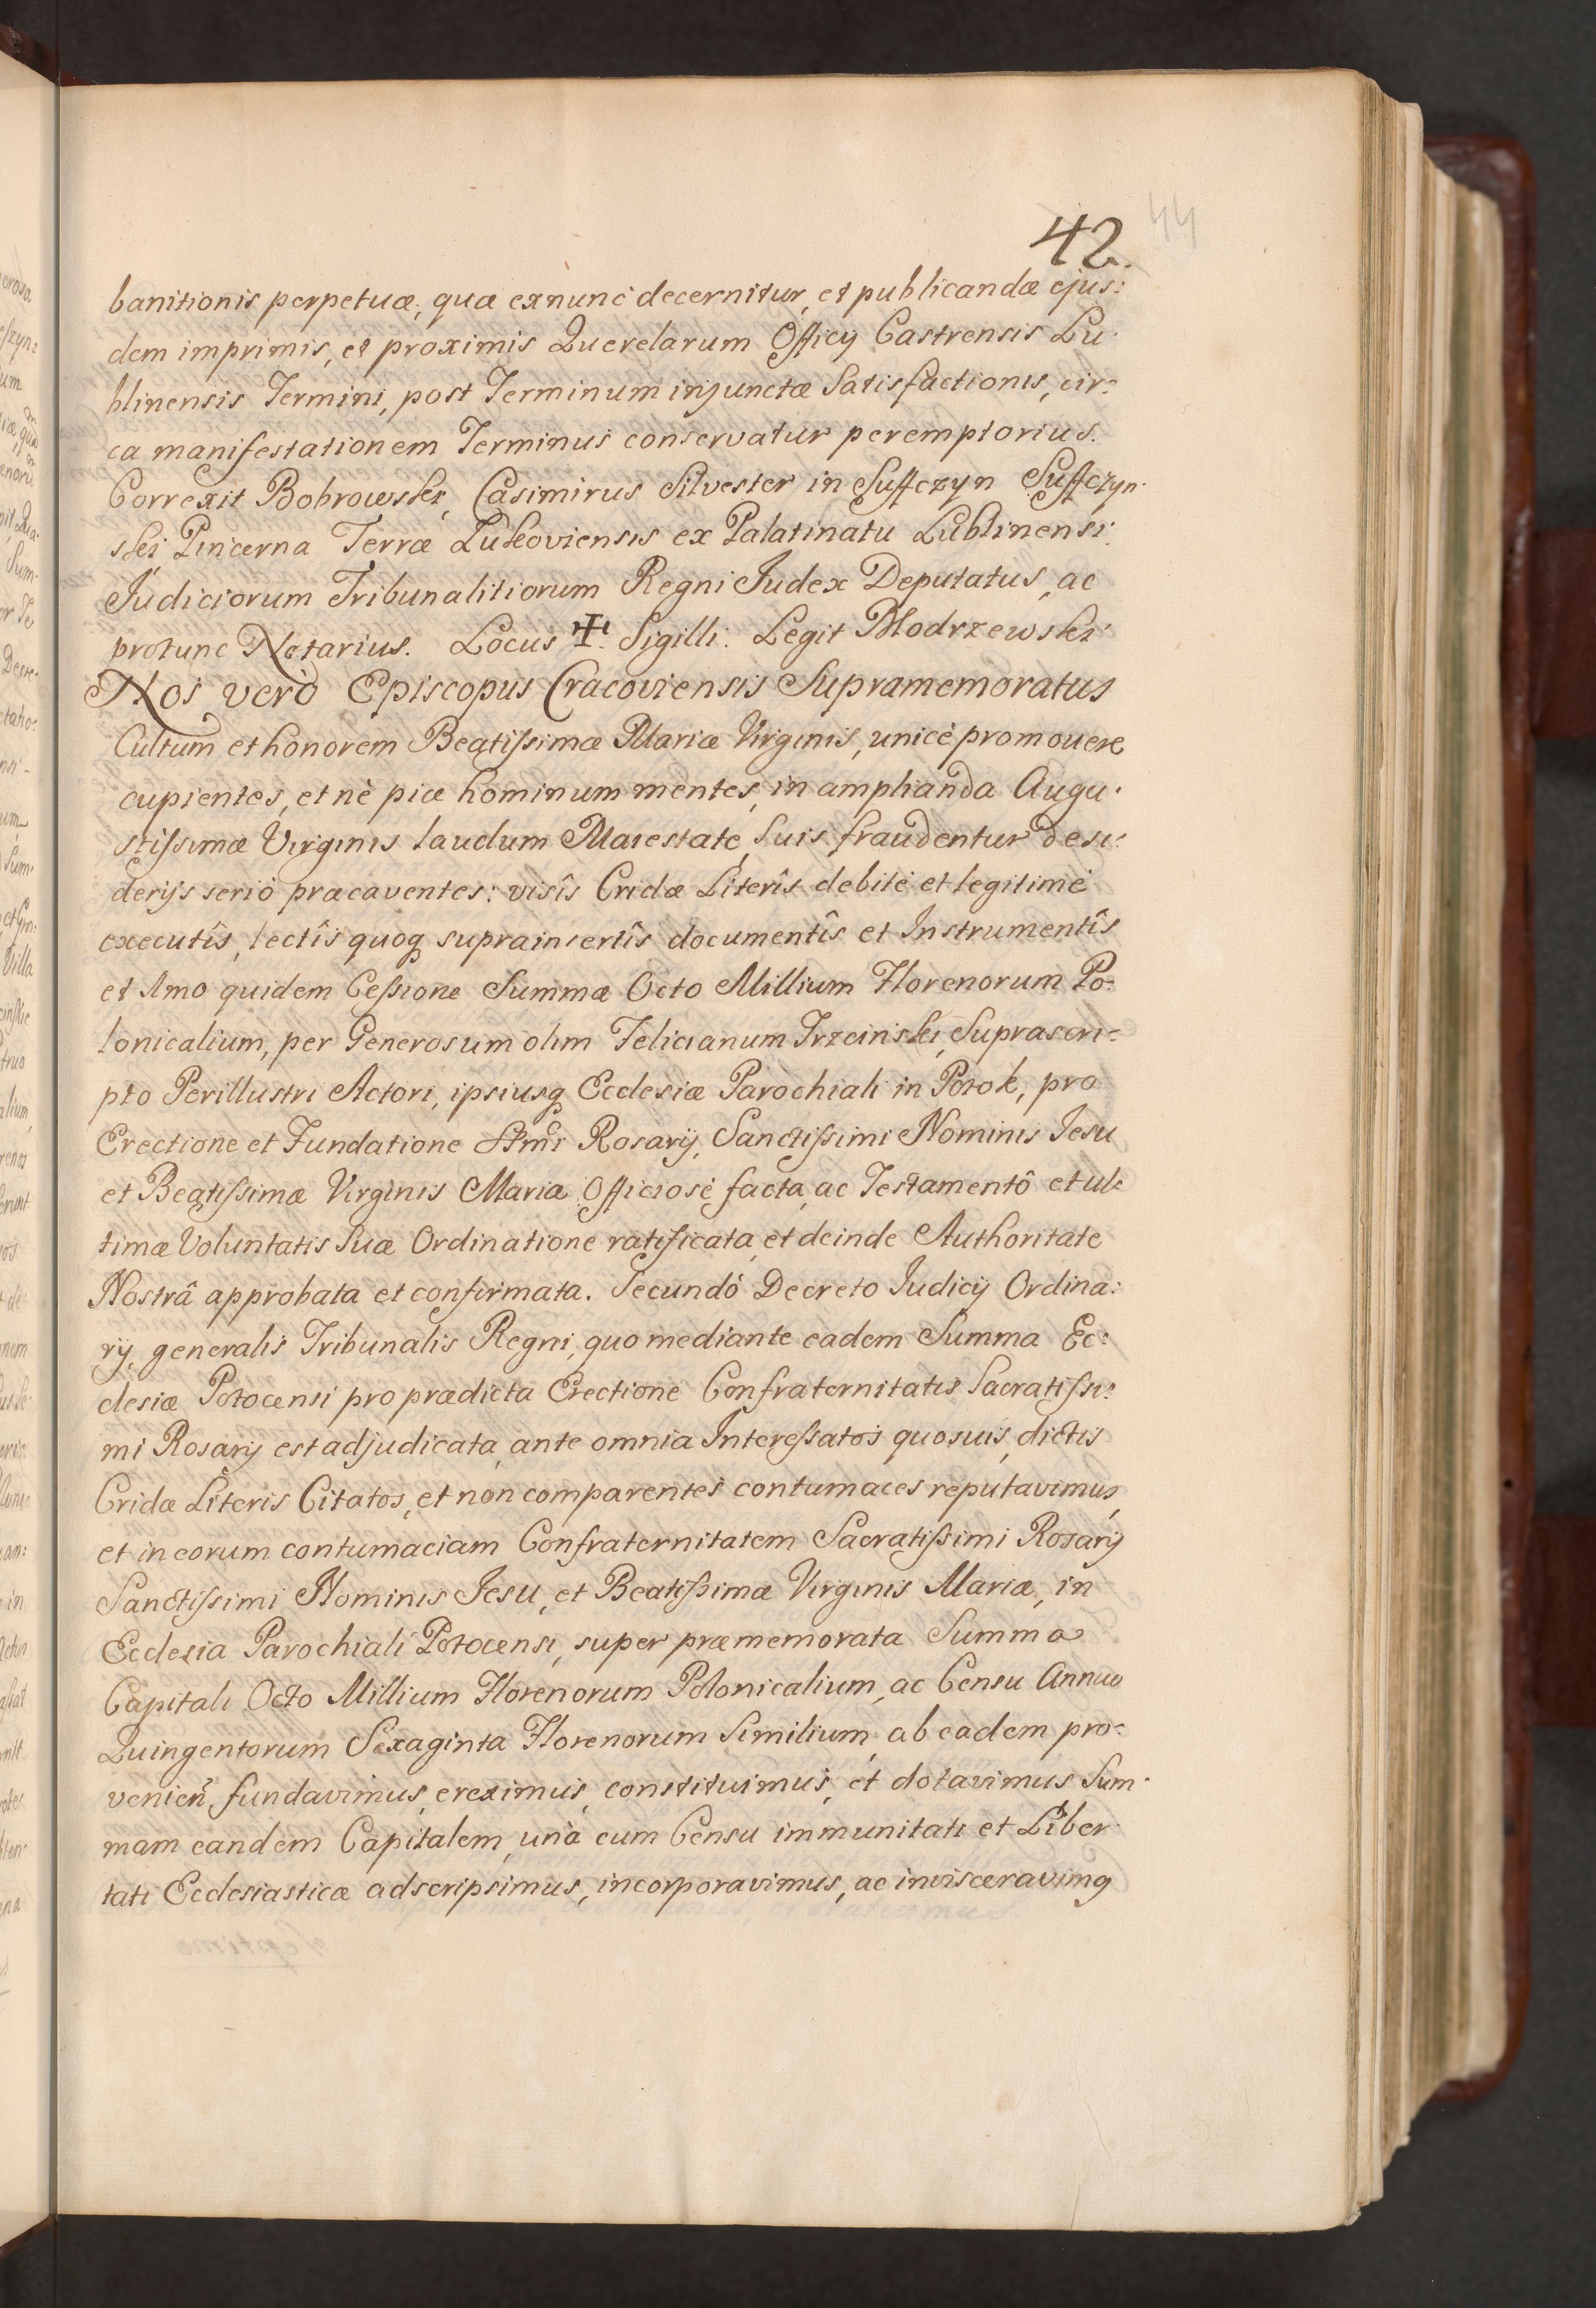 42.
44
banitionis perpetuæ, quæ exnunc decernitur, et publicandæ ejus:
dem imprimis, et proximis Querelarum Officÿ Castrensis Lu-
blinensis Termini, post Terminum injunctæ Satisfactionis, cir-
ca manifestationem Terminus conservatur peremptorius.
Correxit Bobrowski, Casimirus Silvester in Suffczyn Suffczyn-
ski Pincerna Terræ Lukoviensis ex Palatinatu Lublinensi
Judiciorum Tribunalitiorum Regni Judex Deputatus, ac
protunc Notarius. Locus ✠ Sigilli. Legit Modrzewski
Nos verò Episcopus Cracoviensis Supramemoratus
Cultum et honorem Beatißimæ Mariæ Virginis, unicè promouere
cupientes, et nè piæ hominum mentes, in amplianda Augu-
stißimæ Virginis laudum Maiestate, suis fraudentur desi:
derÿs seriò præcaventes: visîs Cridæ Literîs debitè et legitimè
executîs, lectîs quoq suprainsertîs documentîs et Instrumentîs
et Imo quidem Ceßione Summæ Octo Millium Florenorum Po-
lonicalium, per Generosum olim Felicianum Trzcinski, Suprascri-
pto Perillustri Actori, ipsiusq Ecclesiæ Parochiali in Potok, pro
Erectione et Fundatione SSmi Rosarÿ, Sanctißimi Nominis Jesu
et Beatißimæ Virginis Mariæ Officiosè facta, ac Testamentô et ul-
timæ Voluntatis Suæ Ordinatione ratificata, et deinde Authoritate
Nostrâ approbata et confirmata. Secundò Decreto Judicÿ Ordina:
rÿ, generalis Tribunalis Regni, quo mediante eadem Summa Ec:
clesiæ Potocensi pro prædicta Erectione Confraternitatis Sacratißi:
mi Rosarÿ est adjudicata, ante omnia Intereßatos quosuis, dictis
Cridæ Literis Citatos, et non comparentes contumaces reputavimus,
et in eorum contumaciam Confraternitatem Sacratißimi Rosarÿ
Sanctißimi Nominis Jesu, et Beatißimæ Virginis Mariæ, in
Ecclesia Parochiali Potocensi, super præmemorata Summa
Capitali Octo Millium Florenorum Polonicalium, ac Censu Annuo
Quingentorum Sexaginta Florenorum Similium, ab eadem pro-
venien̄, fundavimus, ereximus, constituimus, et dotavimus Sum-
mam eandem Capitalem, unà cum Censu immunitati et Liber-
tati Ecclesiasticæ adscripsimus, incorporavimus, ac invisceravimq